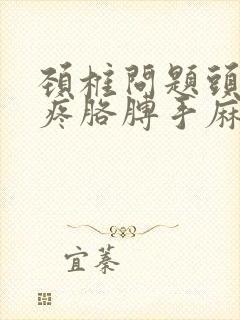 頸柱問題頭
疼胳膊手麻
宜蓁